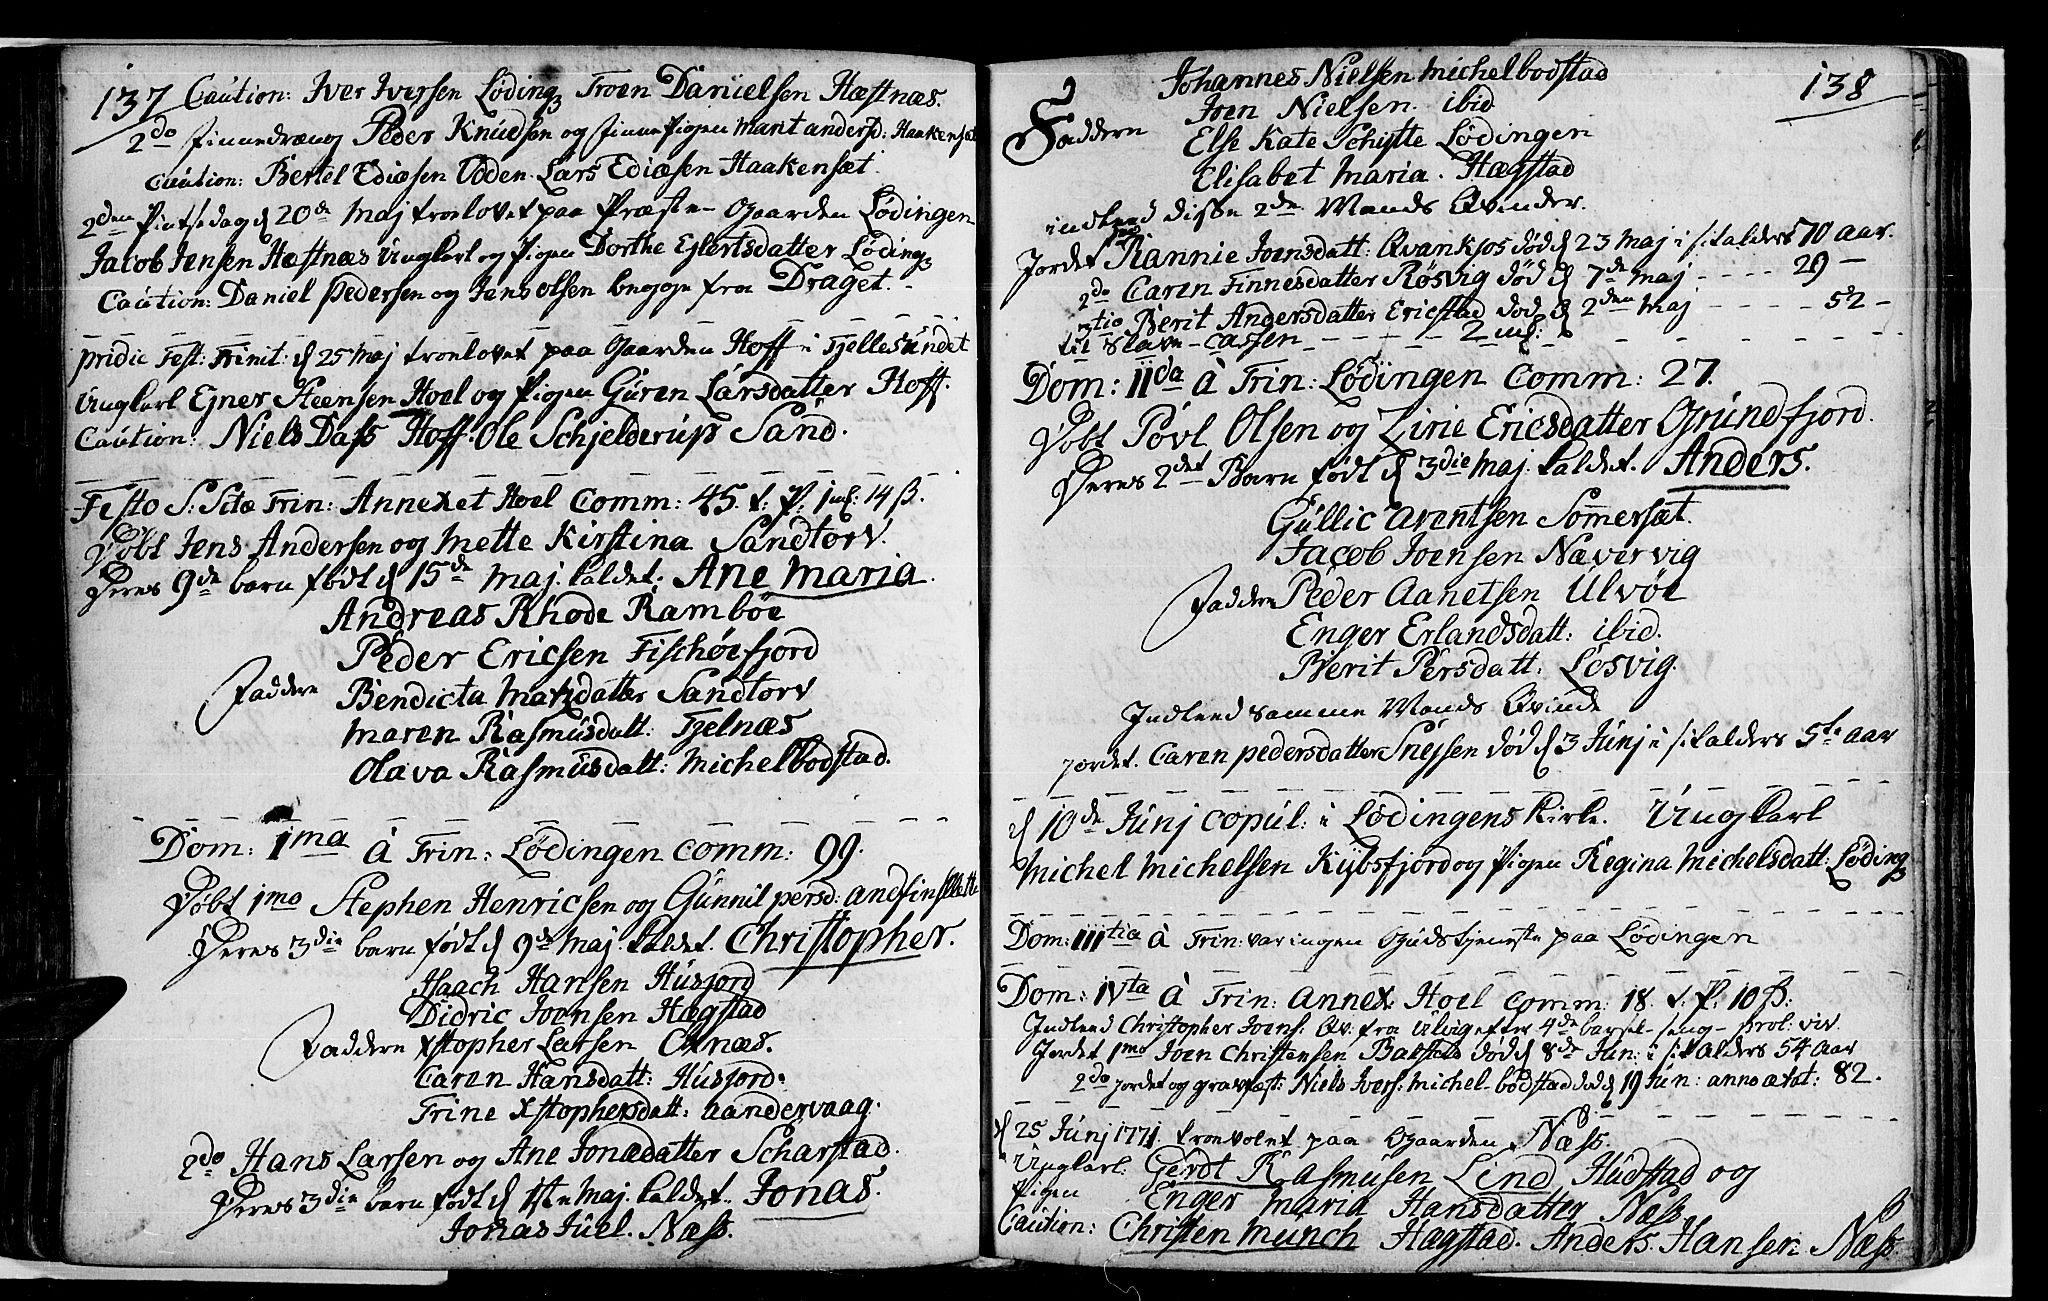 137 Caution: Iver Iversen Løding, Troen Danielsen Hæstnæs.
2do finnedræng Peder Knudsen og finne Pigen Marit andersd: Haakensæt
Caution: Bertel Ediæsen Vöden. Lars Ediæsen Haakensæt.
2den Pintsedag d 20de Maj troelovet paa Præste-Gaarden Lødingen
Jacob Jensen Hæstnæs Ungkarl og Pigen Dorthe Ejlertsdatter Løding
Caution: Daniel Pedersen og Jens olsen begge fra Draget.
pridie Fest: Trinit: d 25 Maj troelovet paa Gaarden Hoff i Tjellesundet
Ungkarl Ejner Steensen Hoel og Pigen Guren Larsdatter Hoff.
Caution: Niels Dass Hoff. Ole Schjelderup Sand.
Festo S: Sctæ Trin: Annexet Hoel Comm: 45. t. P. 1 mk: 14 ß.
Døbt Jens Andersen og Mette Kirstina Sandtorv.
Deres 9de barn født d 15de Maj. kaldet. Ane Maria.
Andreas Rhode Ramböe
Peder Ericsen Fischöefjord
Faddere Bendicta Matzdatter Sandtorv
Maren Rasmusdatt: Tjelnæs
Olava Rasmusdatt: Michelbodstad.
Dom: 1ma à Trin: Lødingen Comm: 99.
Døbt 1mo Stephen Henricsen og Gunnil persd: andfinslette
Deres 3die barn født d 9de Maj. kaldet. Christopher.
Haach Hansen Husjord
Didric Joensen Hægstad
Faddere Xstopher Larsen Offnæs.
Caren Hansdatt: Husjord.
Trine Xstophersdatt: aandervaag.
2do Hans Larsen og Ane Jonædatter Scharstad.
Deres 3die barn født d 1ste Maj. kaldet. Jonas.
Jonas Juel. Næss.
138
Johannes Nielsen Michelbodstad
Joen Nielsen. ibid
Faddere Else Kate Schytte Lødingen
Elisabet Maria. Hægstad
indleed disse 2de Mands Qvinder.
Jordet Rannie Joensdatt: Qvankjos død d 23 Maj i sit alders 70 aar.
2do Caren Finnesdatter Røsvig død d 7de Maj. - - - - 29 -
3tio Berit Andersdatter Ericstad død d 2den Maj - - - - 52 -
til Slave-Cassen - - - - 2 mk:
Dom: IIda à Trin: Lødingen Comm: 27.
Døbt Povl Olsen og Zirie Ericsdatter Grundfjord.
Deres 2det Barn født d 3die Maj. kaldet. Anders.
Gullic Arentsen Somersæt.
Jacob Joensen Næverviig
Faddere Peder Aanetsen Ulvöe
Enger Erlandsdatt: ibid.
Berit Persdatt: Løsvig.
Indleed samme Mands Qvinde
jordet. Caren pedersdatter Snejsen død d 3 Junj i sit alders 5te aar
d 10de Junj copul: i Lødingens Kirke. Ungkarl
Michel Michelsen Kybsfjord og Pigen Regina Michelsdatt: Løding
Dom: IIItia à Trin: var ingen Gudstjeneste paa Lødingen
Dom: IVta à Trin: Annex. Hoel Comm: 18. t. P. 10 ß:
Indleed Christopher Joens: Qv: fra Ulvig efter 4de barsel-seng- prol: viv.
Jordet 1mo Joen Christensen Balstad død d 8de Jun: i sit Alders 54 Aar
2do jordet og gravfæst: Niels Ivers: Michel-bodstad død d 19 Jun: anno ætat: 82.
d 25 Junj 1771 troevolet paa Gaarden Næss.
Ungkarl: Gerdt Rasmusen Lind Hudstad og
Pigen Enger Maria Hansdatter Næss
Caution: Christen Munch Hægstad. Anders Hansen Næss